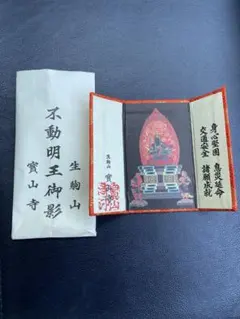 不動明王御影
生駒山
寳山寺
身心堅固 息災延命
交通安全 諸願成就
生駒山
寳山寺